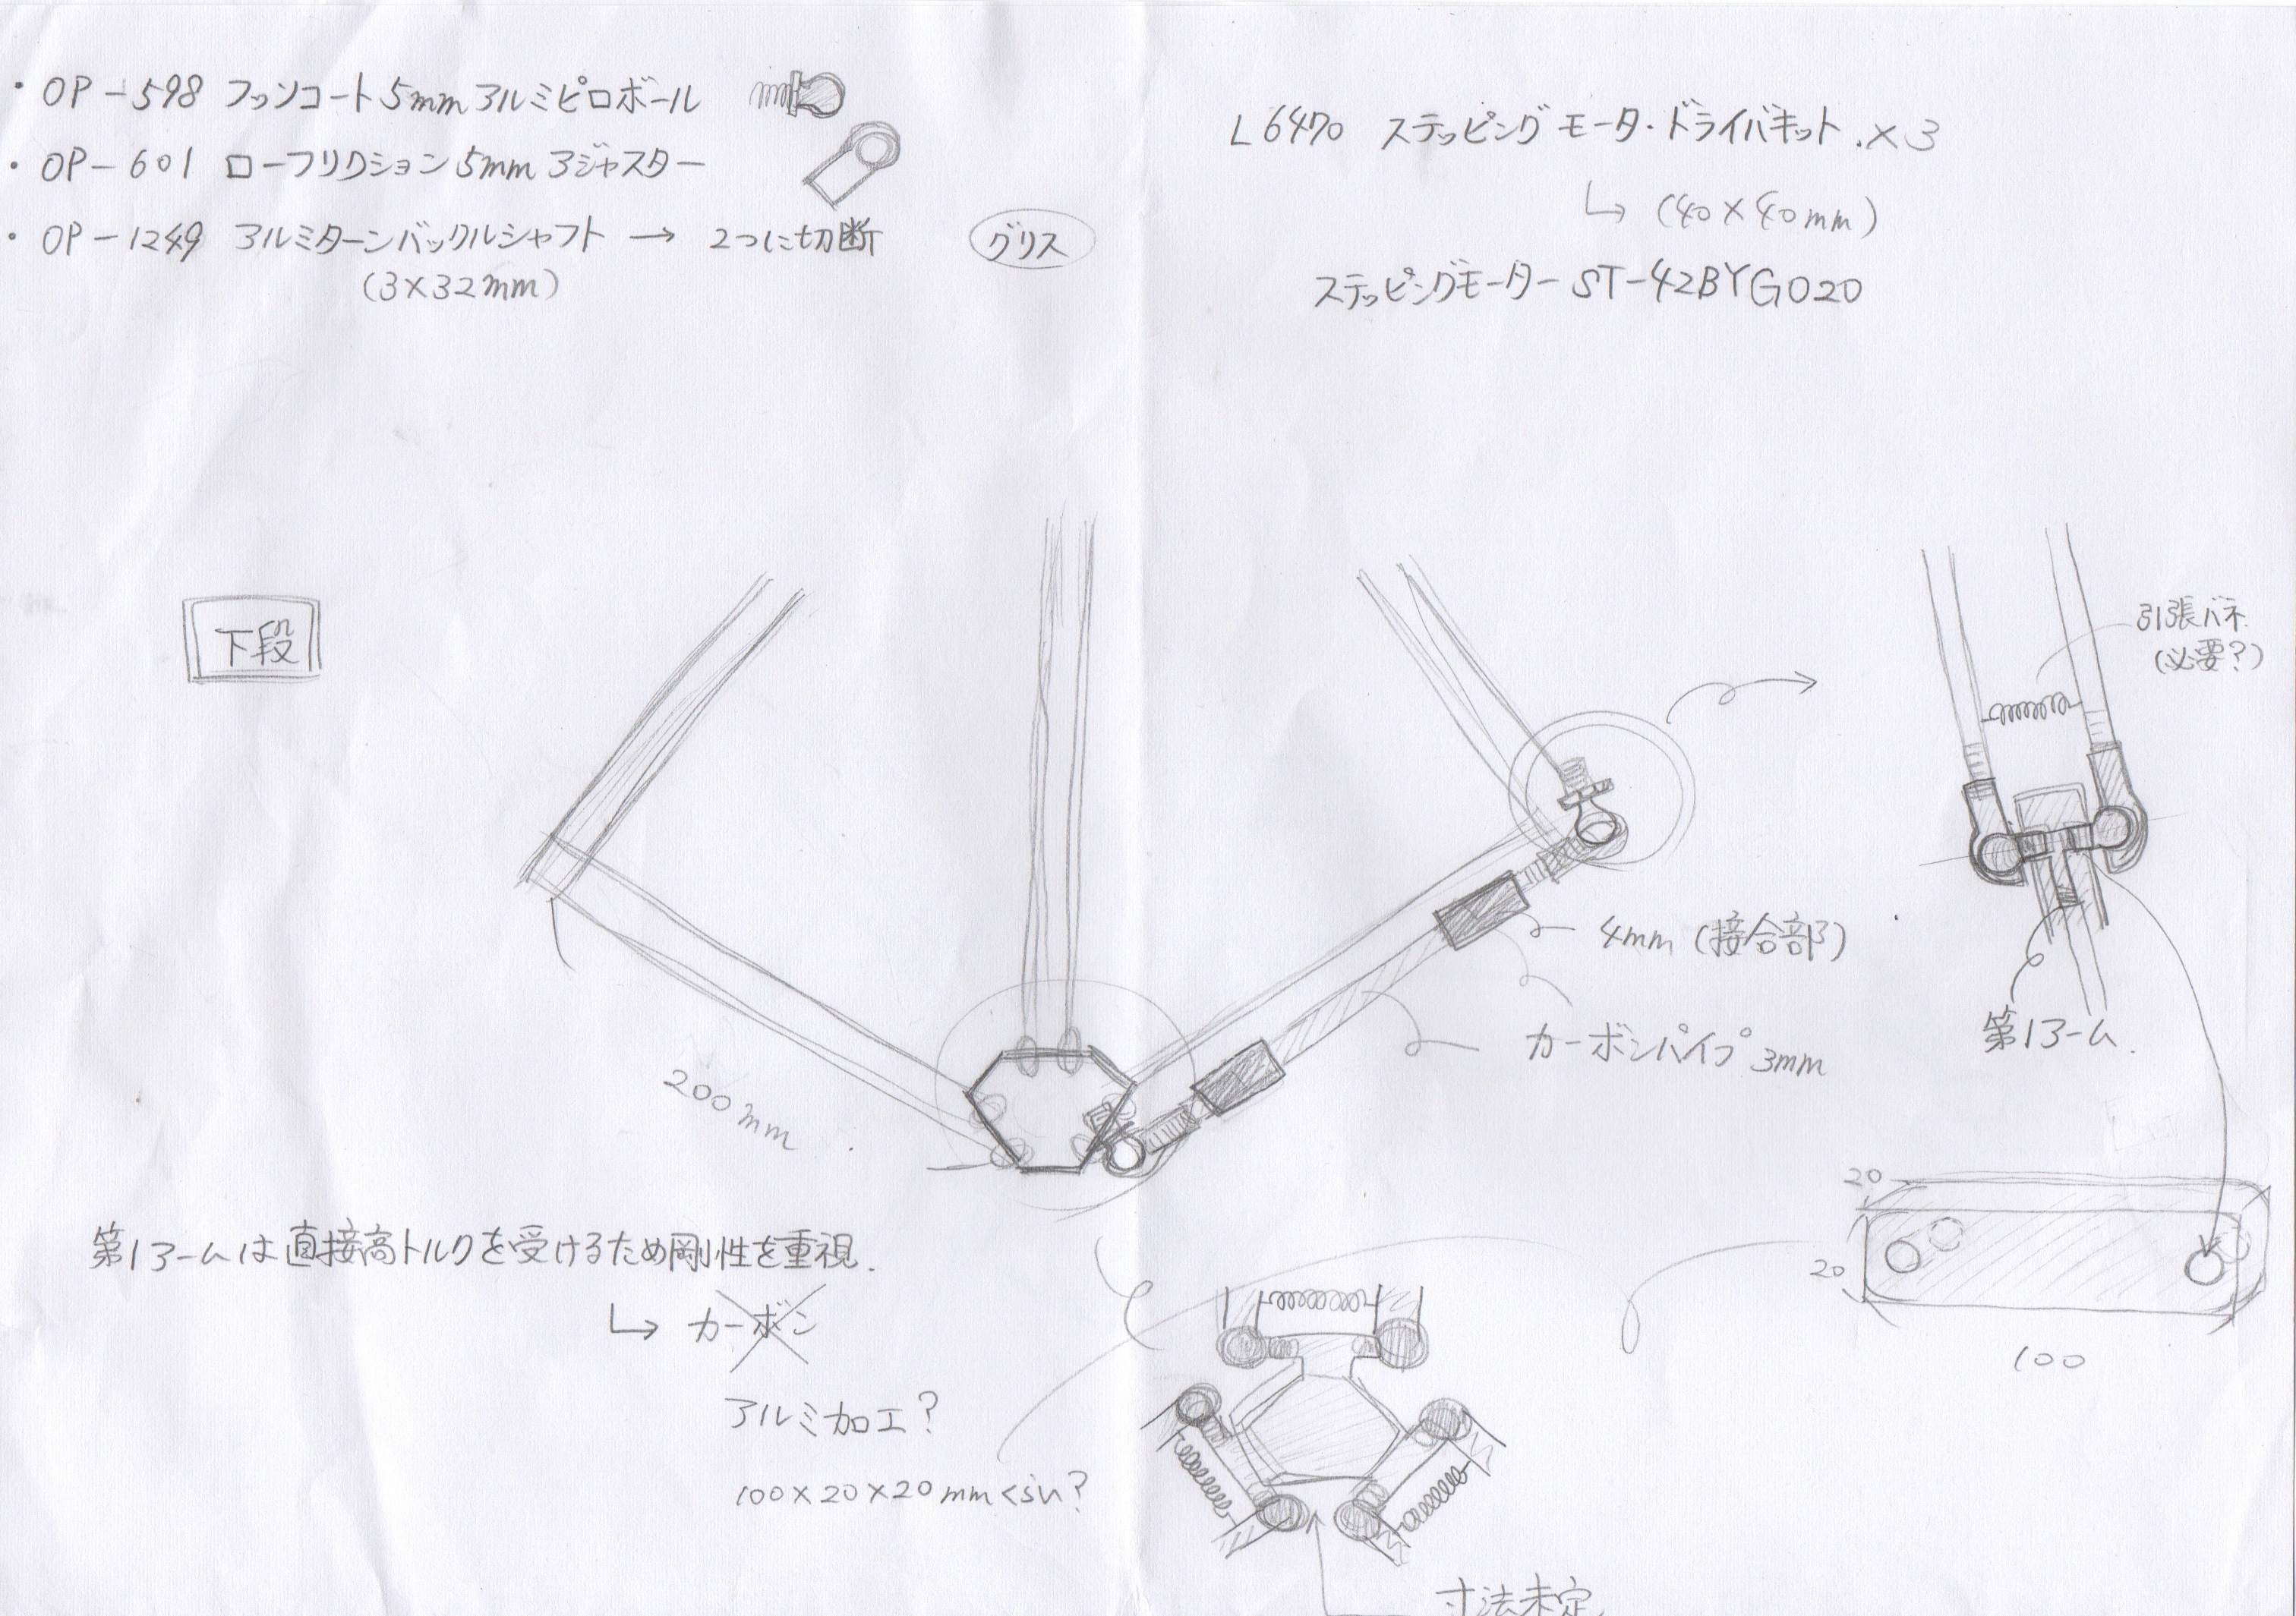 ・OP-598 フッソコート5mmアルミピロボール
・OP-601 ローフリクション5mmアジャスター
・OP-1249 アルミターンバックルシャフト → 2つに切断
(3×32mm)
グリス
L6470 ステッピングモータ・ドライバキット.×3
↳ (40×40mm)
ステッピングモーター ST-42BYG020
下段
引張バネ
(必要?)
4mm (接合部)
カーボンパイプ 3mm
第1アーム
200mm
第1アームは直接高トルクを受けるため剛性を重視.
↳ カーボン
アルミ加工?
100×20×20mmくらい?
20
20
100
寸法未定